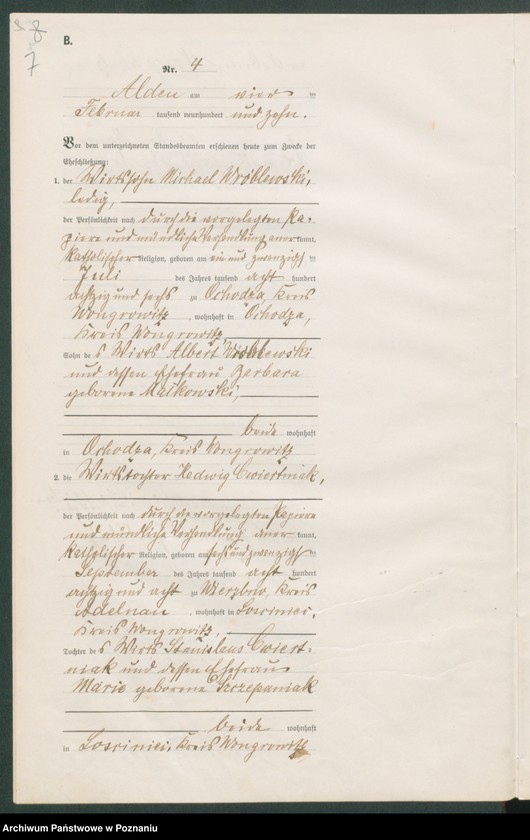 8
7
B.
Nr. 4
Alden am vier ten
Februar tausend neunhundert und zehn.
Vor dem unterzeichneten Standesbeamten erschienen heute zum Zwecke der
Eheschließung:
1. der Wirtssohn Michael Wroblewski,
ledig,
der Persönlichkeit nach durch die vorgelegten Pa-
piere und mündliche Verhandlung aner kannt,
katholischer Religion, geboren am ein und zwanzigsten
Juli des Jahres tausend acht hundert
achtzig und sechs zu Ochodza, Kreis
Wongrowitz, wohnhaft in Ochodza,
Kreis Wongrowitz
Sohn des Wirts Albert Wroblewski
und dessen Ehefrau Barbara
geborene Maikowski,
beide wohnhaft
in Ochodza, Kreis Wongrowitz
2. die Wirtstochter Hedwig Cwiertniak,
der Persönlichkeit nach durch die vorgelegten Papiere
und mündliche Verhandlung aner kannt,
katholischer Religion, geboren am sechs und zwanzigsten
September des Jahres tausend acht hundert
achtzig und acht zu Wierzbno, Kreis
Adelnau, wohnhaft in Losciniec,
Kreis Wongrowitz,
Tochter des Wirts Stanislaus Cwiert-
niak und dessen Ehefrau
Marie geborene Szczepaniak
beide wohnhaft
in Losciniec, Kreis Wongrowitz
Archiwum Państwowe w Poznaniu